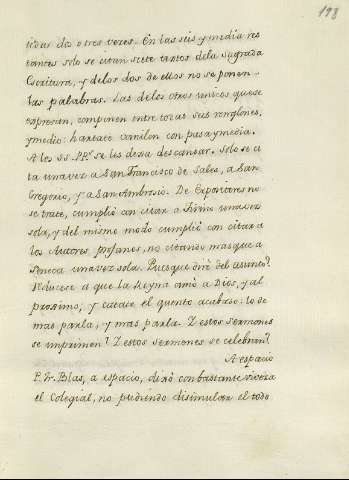 193
tidas dos otres veces. En las seis y media res
tantes solo se citan siete textos dela Sagrada
Escritura, y delos dos de ellos no se ponen
las palabras. Las delos otros unicos que se
expresan, componen entre todas seis renglones,
y medio: hartate comilon con pasa y media.
A los SS. PP. se les dexa descansar. Solo se ci
ta una vez a San Francisco de Sales, a San
Gregorio, y a San Ambrosio. De Expositores no
se trate, cumpliò con citar a una vez
sola, y del mismo modo cumpliò con citar a
los Autores profanos, no citando mas que a
Seneca una vez sola. Pues que dirè del asunto?
Reducese a que la Reyna amò a Dios, y al
proximo; y catate el quento acabado: lo de
mas parla, y mas parla. Y estos Sermones
se imprimen? Y estos Sermones se celebran?
A espacio
P. Fr. Blas, a espacio, dixò con bastante viveza
el Colegial, no pudiendo disimular el todo